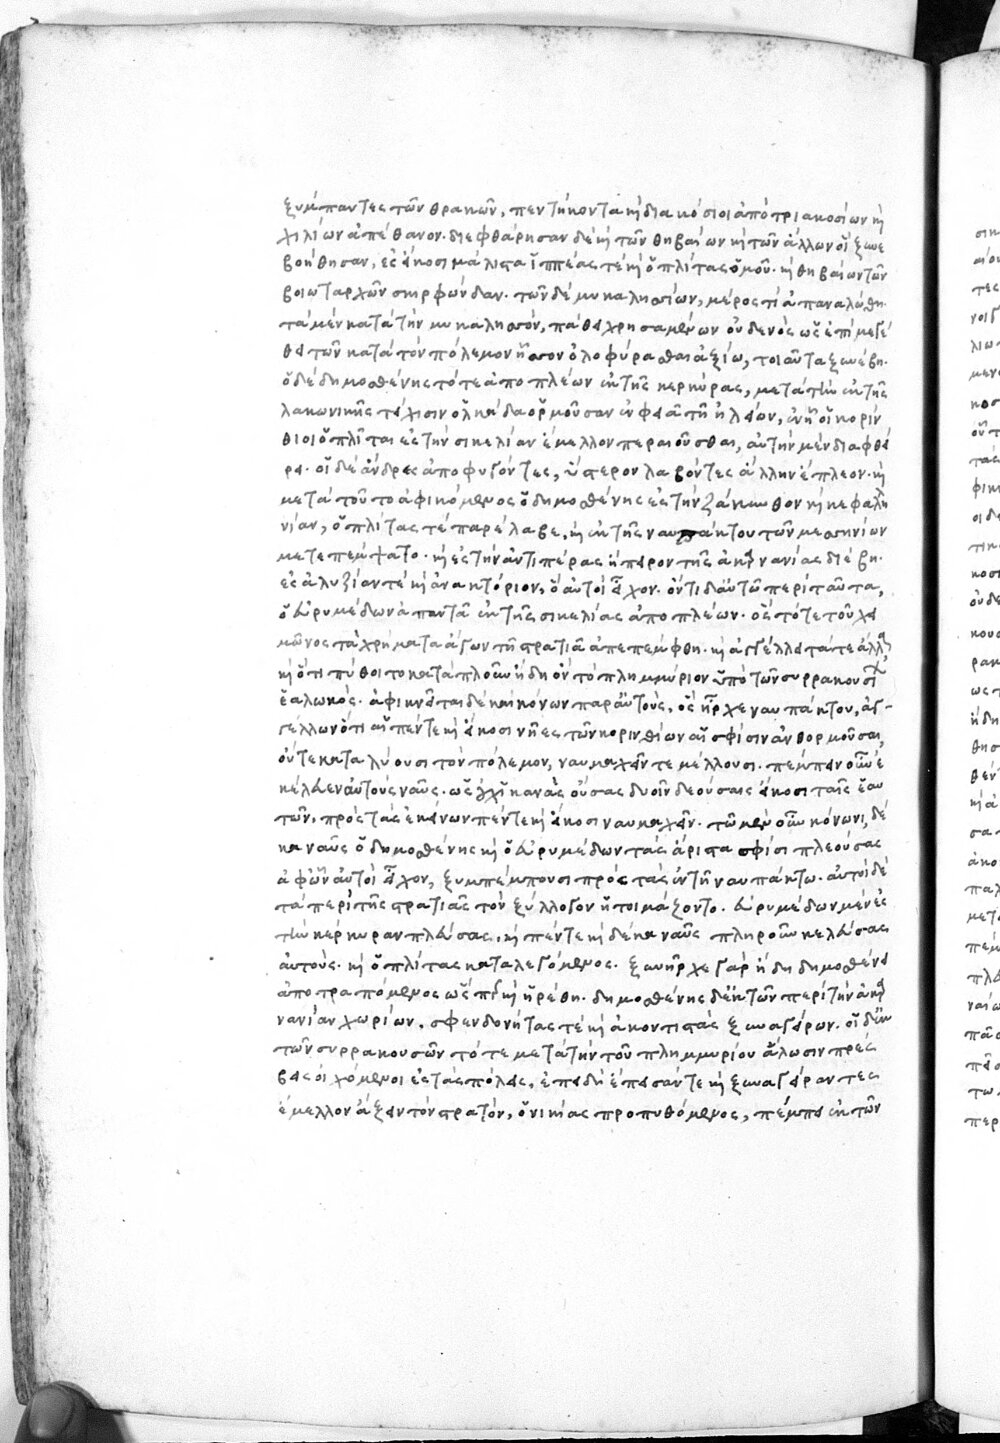 ξύμπαντες τῶν θρακῶν, πεντήκοντα κὴ διακόσιοι ἀπὸ τριακοσίων κὴ
χιλίων ἀπέθανον. διεφθάρησαν δὲ κὴ τῶν θηβαίων κὴ τῶν ἄλλων οἳ ξυνε
βοήθησαν, ἐς εἴκοσι μάλιστα ἱππέας τὲ κὴ ὁπλίτας ὁμοῦ. κὴ θηβαίων τῶν
βοιωταρχῶν σκιρφώνδαν. τῶν δὲ μυκαλησίων, μέρος τὶ ἀπαναλώθη.
τὰ μὲν κατὰ τὴν μυκαλησὸν, πάθει χρησαμένων οὐδενὸς ὡς ἐπὶ μεγέ
θει τῶν κατὰ τὸν πόλεμον ἧσσον ὀλοφύρασθαι ἀξίω, τοιαῦτα ξυνέβη.
ὁ δὲ δημοσθένης τότε ἀποπλέων ἐκ τῆς κερκύρας, μετὰ τὴν ἐκ τῆς
λακωνικῆς τείχισιν ὁλκάδα ὁρμοῦσαν ἐν φειᾶ τῆ ἠλείων, ἐν ἧ οἱ κορίν
θιοι ὁπλῖται ἐς τὴν σικελίαν ἔμελλον περαιοῦσθαι, αὐτὴν μὲν διαφθεί
ρει. οἱ δὲ ἄνδρες ἀποφυγόντες, ὕστερον λαβόντες ἄλλην ἔπλεον. κὴ
μετὰ τοῦτο ἀφικόμενος ὁ δημοσθένης ἐς τὴν ζάκυνθον κὴ κεφαλη
νίαν, ὁπλίτας τὲ παρέλαβε, κὴ ἐκ τῆς ναυπάκτου τῶν μεσσηνίων
μετεπέμψατο. κὴ ἐς τὴν ἀντιπέρας ἤπειρον τῆς ἀκαρνανίας διέβη.
ἐς ἀλυζίαν τὲ κὴ ἀνακτόριον, ὃ αὐτοὶ εἶχον. ὄντι δ' αὐτῶ περὶ ταῦτα,
ὁ εὐρυμέδων ἀπαντᾶ ἐκ τῆς σικελίας ἀποπλέων. ὃς τότε τοῦ χει
μῶνος τὰ χρήματα ἄγων τῆ στρατιᾶ ἀπεπέμφθη. κὴ ἀγγέλλει τά τε ἄλλα
κὴ ὅτι πύθοιτο κατὰ πλοῦν ἤδη ὢν τὸ πλημμύριον ὑπὸ τῶν συρρακουσίων
ἑαλωκός. ἀφικνεῖται δὲ κὴ κόνων παρ' αὐτοὺς, ὃς ἦρχε ναυπάκτου, ἀγ-
γέλλων ὅτι αἱ πέντε κὴ εἴκοσι νῆες τῶν κορινθίων αἱ σφίσιν ἀνθορμοῦσαι,
οὔτε καταλύουσι τὸν πόλεμον, ναυμαχεῖν τε μέλλουσι. πέμπειν οὖν ἐ
κέλευεν αὐτοὺς ναῦς. ὡς οὐχ ἱκανὰς οὔσας δυοῖν δεούσαις εἴκοσι ταῖς ἑαυ
τῶν, πρὸς τὰς ἐκείνων πέντε κὴ εἴκοσι ναυμαχεῖν. τῶ μὲν οὖν κόνωνι, δέ
κα ναῦς ὁ δημοσθένης κὴ ὁ εὐρυμέδων τὰς ἄριστα σφίσι πλεούσας
ἀφ' ὧν αὐτοὶ εἶχον, ξυμπέμπουσι πρὸς τὰς ἐν τῆ ναυπάκτω. αὐτοὶ δὲ
τὰ περὶ τῆς στρατιᾶς τὸν ξύλλογον ἡτοιμάζοντο. εὐρυμέδων μὲν ἐς
τὴν κέρκυραν πλεύσας, κὴ πέντε κὴ δέκα ναῦς πληροῦν κελεύσας
αὐτοὺς. κὴ ὁπλίτας καταλεγόμενος. ξυνῆρχε γὰρ ἤδη δημοσθένει
ἀποτραπόμενος ὥσπερ κὴ ἡρέθη. δημοσθένης δ' ἐκ τῶν περὶ τὴν ἀκαρ
νανίαν χωρίων, σφενδονήτας τὲ κὴ ἀκοντιστὰς ξυναγείρων. οἱ δ' ἐκ
τῶν συρρακουσῶν τότε μετὰ τὴν τοῦ πλημμυρίου ἅλωσιν πρέσ
βεις οἰχόμενοι ἐς τὰς πόλεις, ἐπειδὴ ἔπεισάν τε κὴ ξυναγείραντες
ἔμελλον ἄξειν τὸν στρατὸν, ὁ νικίας προπυθόμενος, πέμπει ἐκ τῶν